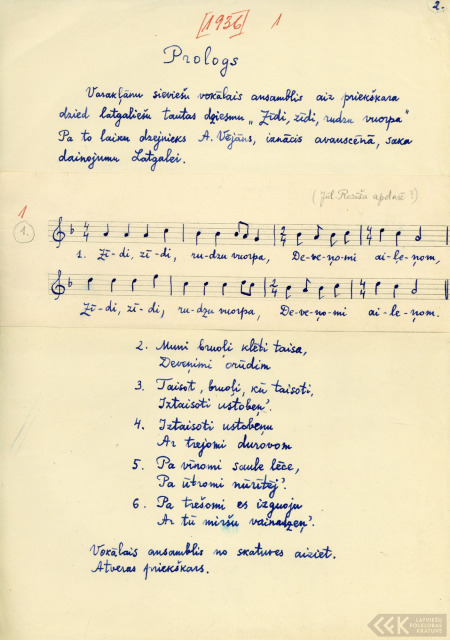 2.
[1936] 1
Prologs
Varakļānu sieviešu vokālais ansamblis aiz priekškara
dzied latgaliešu tautas dziesmu „Zīdi, zīdi, rudzu vuorpa"
Pa to laiku dzejnieks A. Vējāns, iznācis avanscēnā, saka
dainojumu Latgalei.
(Jāl. Rozīša apdarē?)
1
1.
1. Zī-di, zī-di, ru-dzu vuorpa, De-ve-ņo-mi ai-le-ņom,
Zī-di, zī-di, ru-dzu vuorpa, De-ve-ņo-mi ai-le-ņom.
2. Muni bruoļi klēti taisa,
Deveņimi
3. Taisot, bruoļi, kū taisoti,
Iztaisoti ustobeņ'.
4. Iztaisoti ustobeņu
Ar trejomi durovom
5. Pa vīnomi saule lēce,
Pa ūtromi nūrītēj'.
6. Pa trešomi es izguoju
Ar tū miršu vainadzeņ'.
Vokālais ansamblis no skatuves aiziet.
Atveras priekškars.
LATVIEŠU
FOLKLORAS
KRĀTUVE